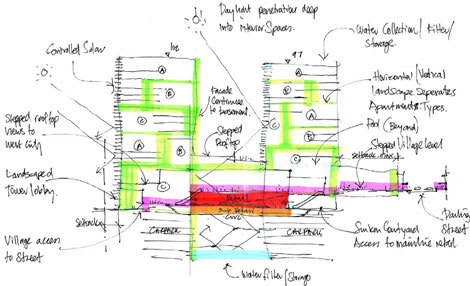 Daylight penetration deep
into interior spaces.
Water Collection/Filter/
Storage.
Controlled Solar
102
97
Horizontal/Vertical
landscape separates
Apartments Types.
facade
continues
to basement.
Pool (Beyond)
Stepped Village level
Stepped rooftop
views to
west city
Stepped
Rooftop
A
B
C
A
B
C
A
B
C
A
B
C
Landscaped
Tower lobby.
Setback
Retail
CARPARK
CARPARK
Village access
to Street
Sunken Courtyard
Access to mainline retail
Darling
Street
Water filter/Storage